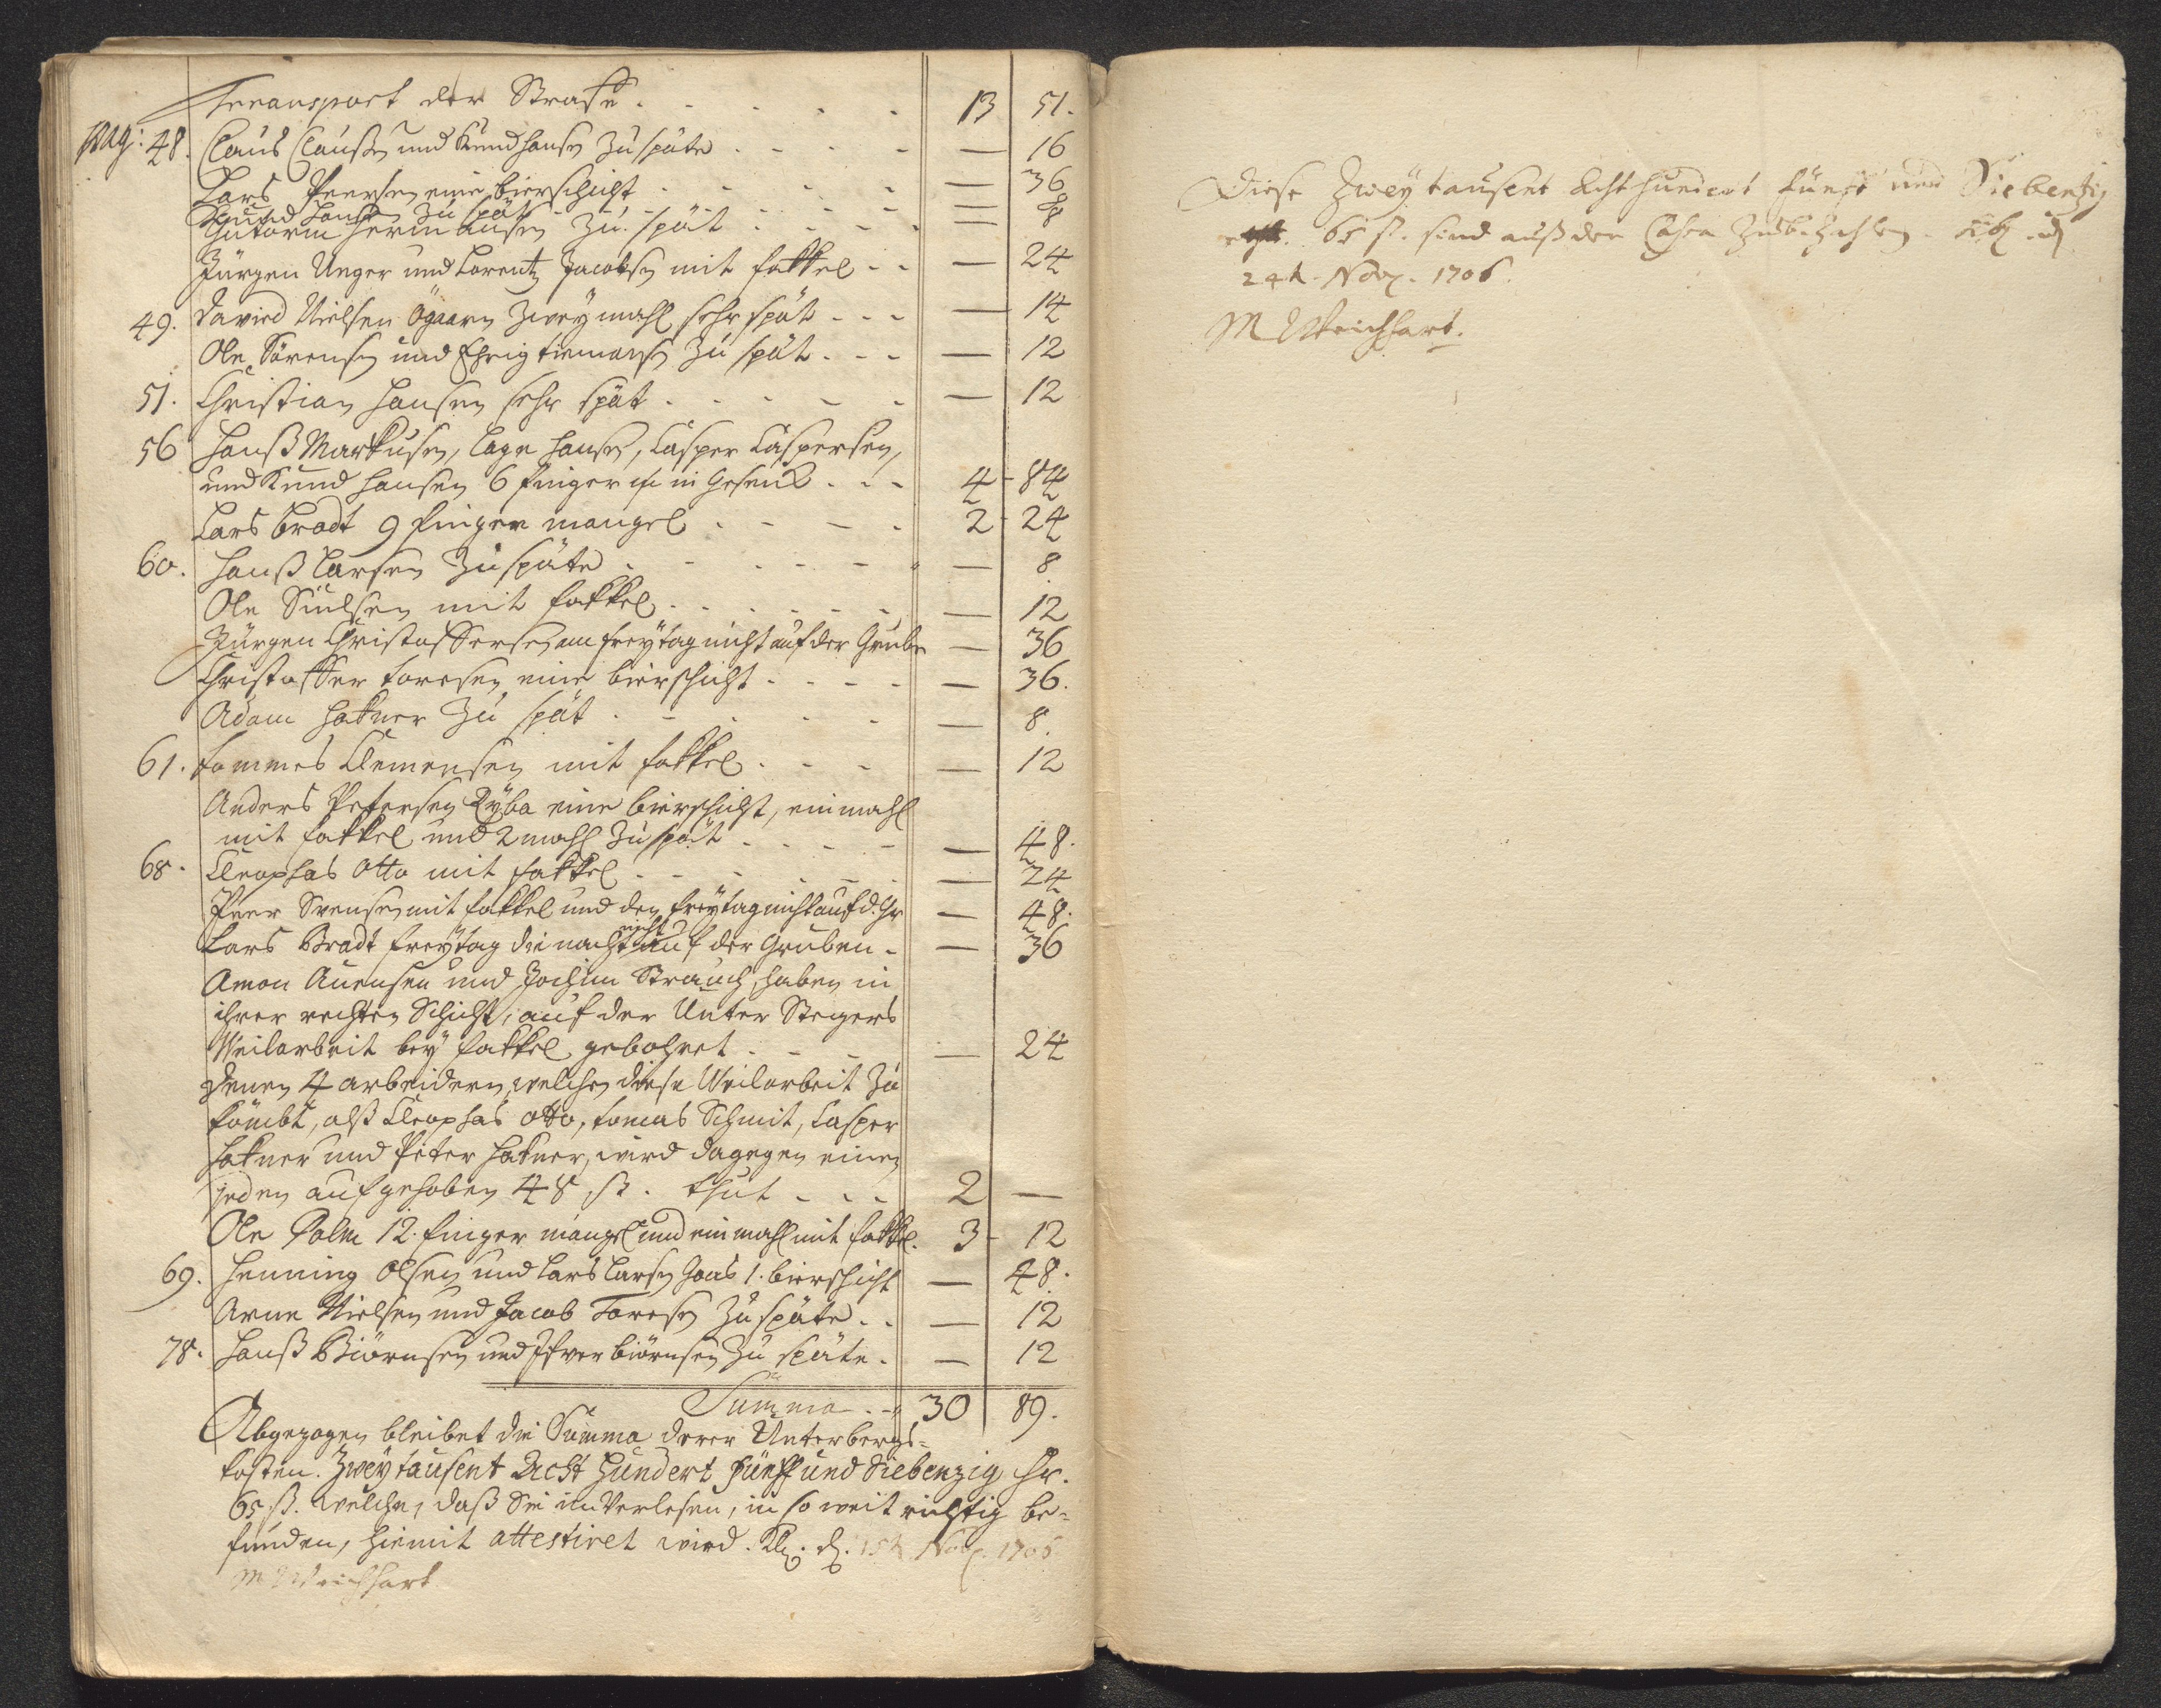 Transport der Straffe 13 51.
pag: 48. Claus Claußen und Knud Hansen zu späte — 16
Lars Peersen eine bierschicht — 36
Knud Hansen zu spät — 8
Gutorm Hermansen zu spät — 8
Jürgen Unger und Lorentz Jacobsen mit fakkel — 24
49. David Nielsen Ögaarn zweymahl sehr spät — 14
Ole Sörensen und zu spät — 12
51. Christian Hansen sehr spät — 12
56 Hanß Markusen, Lage Hansen, Casper Caspersen,
und Knud Hansen 6 finger in Gesenk 4 - 84
Lars Bradt 9 finger mangel 2 - 24
60. Hanß Larsen zu späte — 8
Ole Siulsen mit fakkel — 12
Jürgen Christoffersen am freytag nicht auf der Grube — 36
Christoffer Toresen eine bierschicht — 36.
Adam Hakner zu spät — 8.
61. Tommes Clemensen mit fakkel — 12
Anders Petersen Ryba eine bierschicht, einmahl
mit fakkel und 2 mahl zu spät — 48.
68. Cleophas Otto mit fakkel — 24
Peer Svensen mit fakkel und den freytag nicht auf d. Gr — 48.
Lars Bradt freytag die nacht nicht auf der Gruben — 36
Amon Auensen und Jochim Strauch, haben in
ihrer rechten Schicht, auf der Unter Steigers
Weilarbeit bey fakkel gebohret — 24
Denen 4 arbeidern, welchen diese Weilarbeit zu
kömbt, alß Cleophas Otto, Tomas Schmit, Casper
Hakner und Peter Hakner, wird dagegen einen
jeden aufgehoben 48 ß. thut 2 —
Ole Palm 12. finger mangel und einmahl mit fakkel. 3 - 12
69. Henning Olsen und Lars Larsen Goas 1. bierschicht — 48.
Arne Nielsen und Jacob Toresen zu späte — 12
78. Hanß Biörnsen und Ifver Biörnsen zu späte — 12
Summa 30 89.
Abgezogen bleibet die Summa derer Unterbergs-
kosten. Zweytausent Acht Hundert fünff und Siebenzig
65 ß. welche, daß Sie im Verlesen, in so weit richtig be-
funden, hiemit attestiret wird. Kb. d. 15t Nov. 1706
M Weichhart
Diese Zweytausent Acht hundert fünff und Siebentzig
65 ß. sind auß der Cassa zu bezahlen. Kb. d.
24t. Nov. 1706.
M Weichhart.